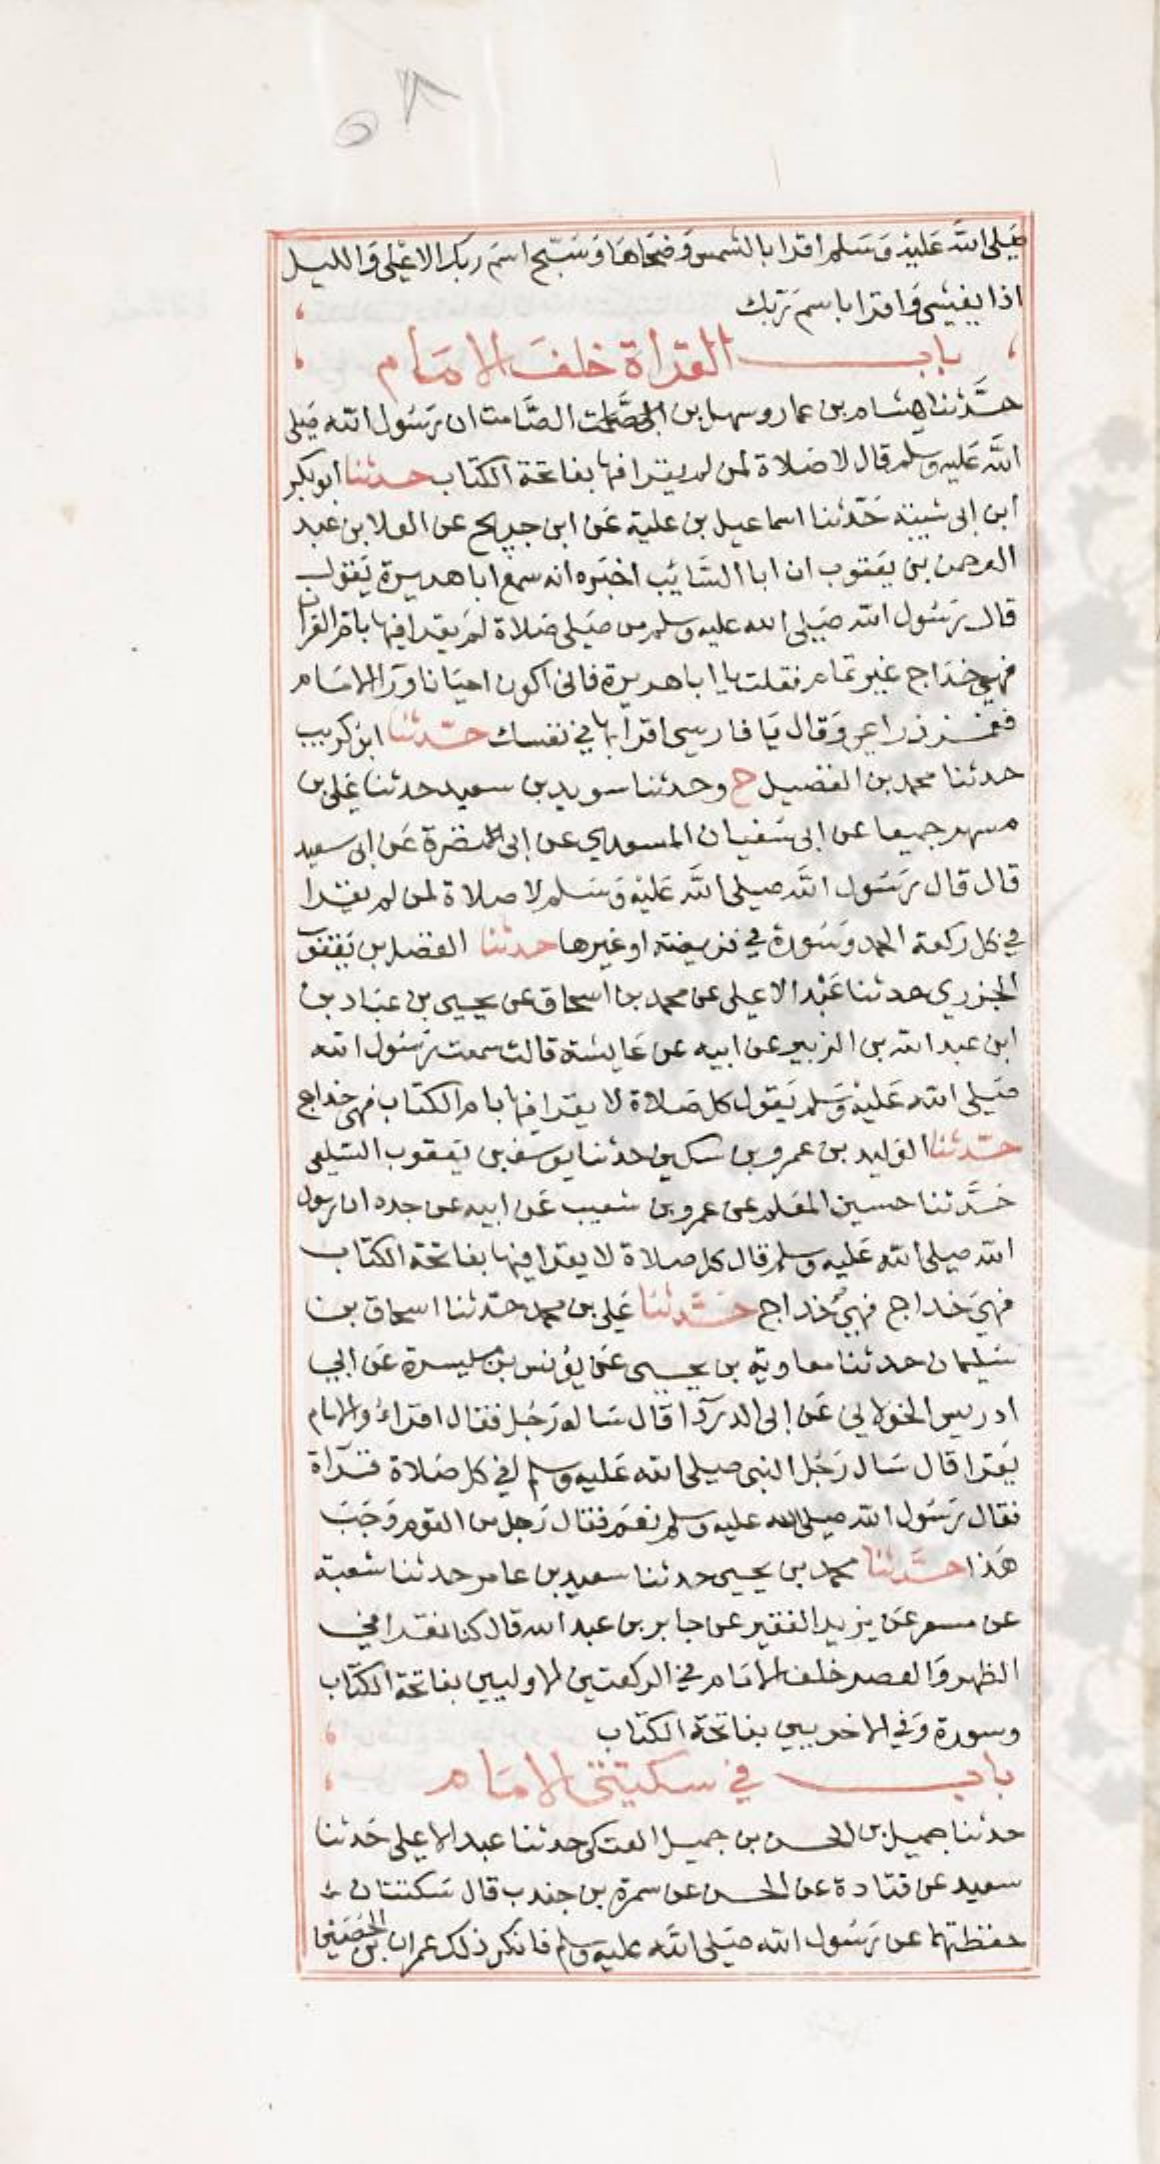 ٥٨
صلى الله عليه وسلم اقرا بالشمس وضحاها وسبح اسم ربك الاعلى والليل
اذا يغشى واقرا باسم ربك
باب القراة خلف الامام
حدثنا هشام بن عمار وسهل بن ابى الصامت ان رسول الله صلى
الله عليه وسلم قال لا صلاة لمن لم يقرا فيها بفاتحة الكتاب حدثنا ابو بكر
ابن ابى شيبة حدثنا اسماعيل بن علية عن ابن جريج عن العلا بن عبد
الرحمن بن يعقوب ان ابا السايب اخبره انه سمع ابا هريرة يقول
قال رسول الله صلى الله عليه وسلم من صلى صلاة لم يقرا فيها بام القران
فهي خداج غير تمام فقلت يا ابا هريرة فانى اكون احيانا ورا الامام
فغمز ذراعي وقال يا فارسى اقرا بها في نفسك حدثنا ابو كريب
حدثنا محمد بن الفضيل ح وحدثنا سويد بن سعيد حدثنا على بن
مسهر جميعا عن ابى سفيان السعدي عن ابى نضرة عن ابى سعيد
قال قال رسول الله صلى الله عليه وسلم لا صلاة لمن لم يقرا
في كل ركعة الحمد وسورة في فريضة او غيرها حدثنا الفضل بن يعقوب
الجزري حدثنا عبد الاعلى عن محمد بن اسحاق عن يحيى بن عباد بن
ابن عبد الله بن الزبير عن ابيه عن عايشة قالت سمعت رسول الله
صلى الله عليه وسلم يقول كل صلاة لا يقرا فيها بام الكتاب فهى خداج
حدثنا الوليد بن عمرو بن سكين حدثنا يوسف بن يعقوب السلعى
حدثنا حسين المعلم عن عمرو بن شعيب عن ابيه عن جده ان رسول
الله صلى الله عليه وسلم قال كل صلاة لا يقرا فيها بفاتحة الكتاب
فهي خداج فهي خداج حدثنا على بن محمد حدثنا اسحاق بن
سليمان حدثنا معاوية بن يحيى عن يونس بن ميسرة عن ابي
ادريس الخولاني عن ابى الدردا قال ساله رجل فقال اقراء والامام
يقرا قال سال رجل النبى صلى الله عليه وسلم افي كل صلاة قراة
فقال رسول الله صلى الله عليه وسلم نعم فقال رجل من القوم وجب
هذا حدثنا محمد بن يحيى حدثنا سعيد بن عامر حدثنا شعبة
عن مسعر عن يزيد الفقير عن جابر بن عبد الله قال كنا نقرا في
الظهر والعصر خلف الامام في الركعتين الاوليين بفاتحة الكتاب
وسورة وفي الاخريين بفاتحة الكتاب
باب في سكتتي الامام
حدثنا جميل بن الحسن بن جميل العتكى حدثنا عبد الاعلى حدثنا
سعيد عن قتادة عن الحسن عن سمرة بن جندب قال سكتتان
حفظتهما عن رسول الله صلى الله عليه وسلم فانكر ذلك عمران بن الحصين